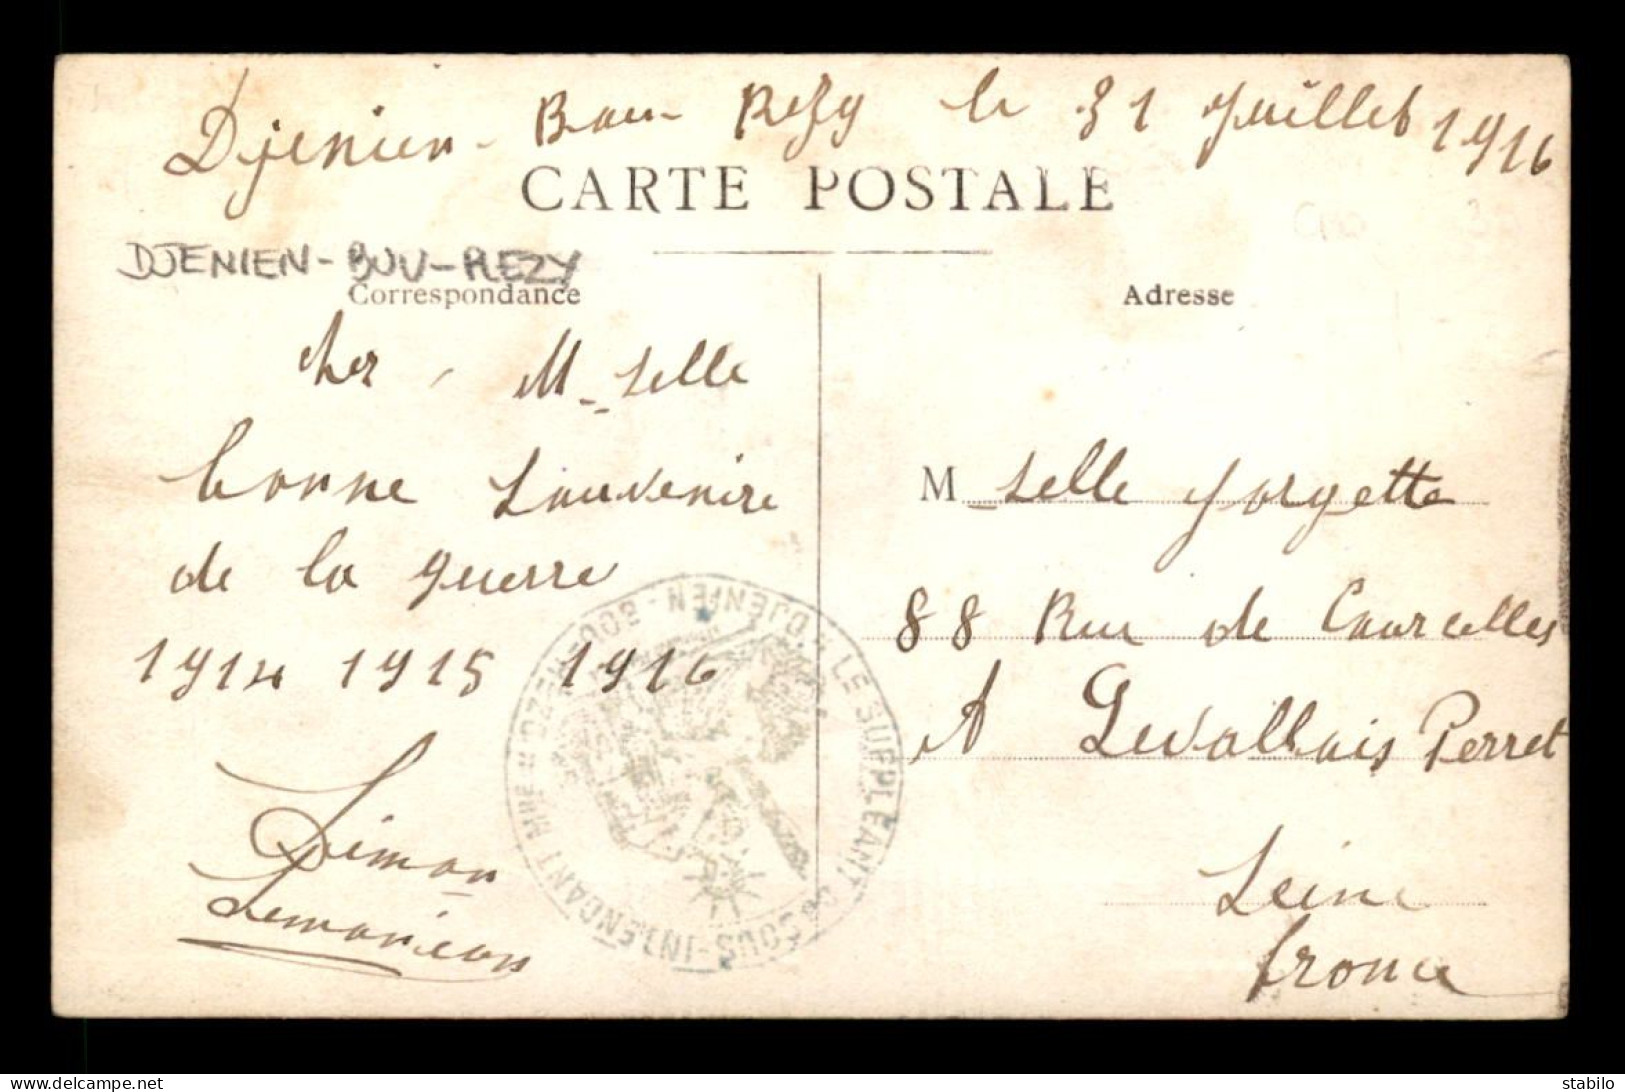 Djenien-Bou-Rezy le 31 Juillet 1916
CARTE POSTALE
DJENIEN-BOU-REZY
Correspondance
Adresse
cher M_selle
bonne souvenire
de la guerre
1914 1915 1916
Simon
M_selle Jorgette
88 Rue de Courcelles
A Levallois Perret
Seine
france
LE SUPPLEANT DU SOUS-INTENDANT MRE DJENIEN-BOU-REZG
delcampe.net
stabilo